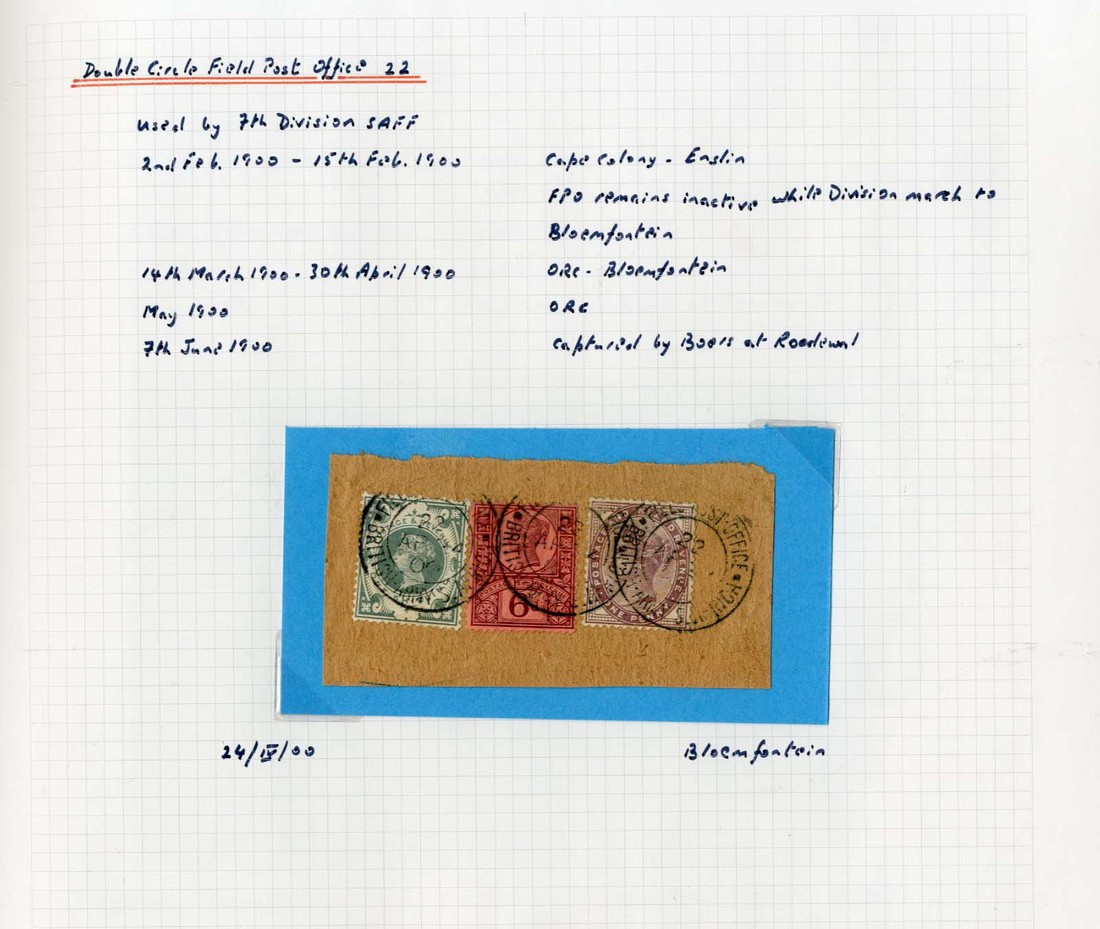 Double Circle Field Post Office 22
used by 7th Division SAFF
2nd Feb. 1900 - 15th Feb. 1900 Cape Colony - Enslin
FPO remains inactive while Division march to
Bloemfontein
14th March 1900 - 30th April 1900 ORC - Bloemfontein
May 1900 ORC
7th June 1900 captured by Boers at Roodewal
22 22 22
BRITI BRITI OFFICE
AP
6
POSTAGE REVENUE
24/IV/00 Bloemfontein